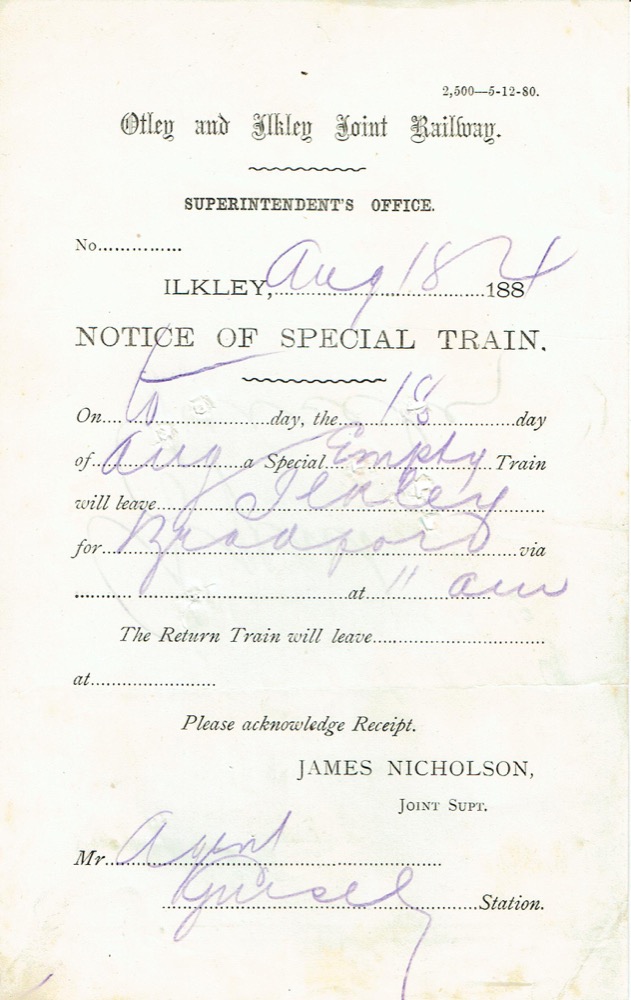 2,500—5-12-80.
Otley and Ilkley Joint Railway.
SUPERINTENDENT'S OFFICE.
No...............
ILKLEY, Aug 18 1884
NOTICE OF SPECIAL TRAIN.
On to day, the 18 day
of Aug a Special Empty Train
will leave Ilkley
for Bradford via
at 11 am
The Return Train will leave
at
Please acknowledge Receipt.
JAMES NICHOLSON,
JOINT SUPT.
Mr Agent
Guisely Station.